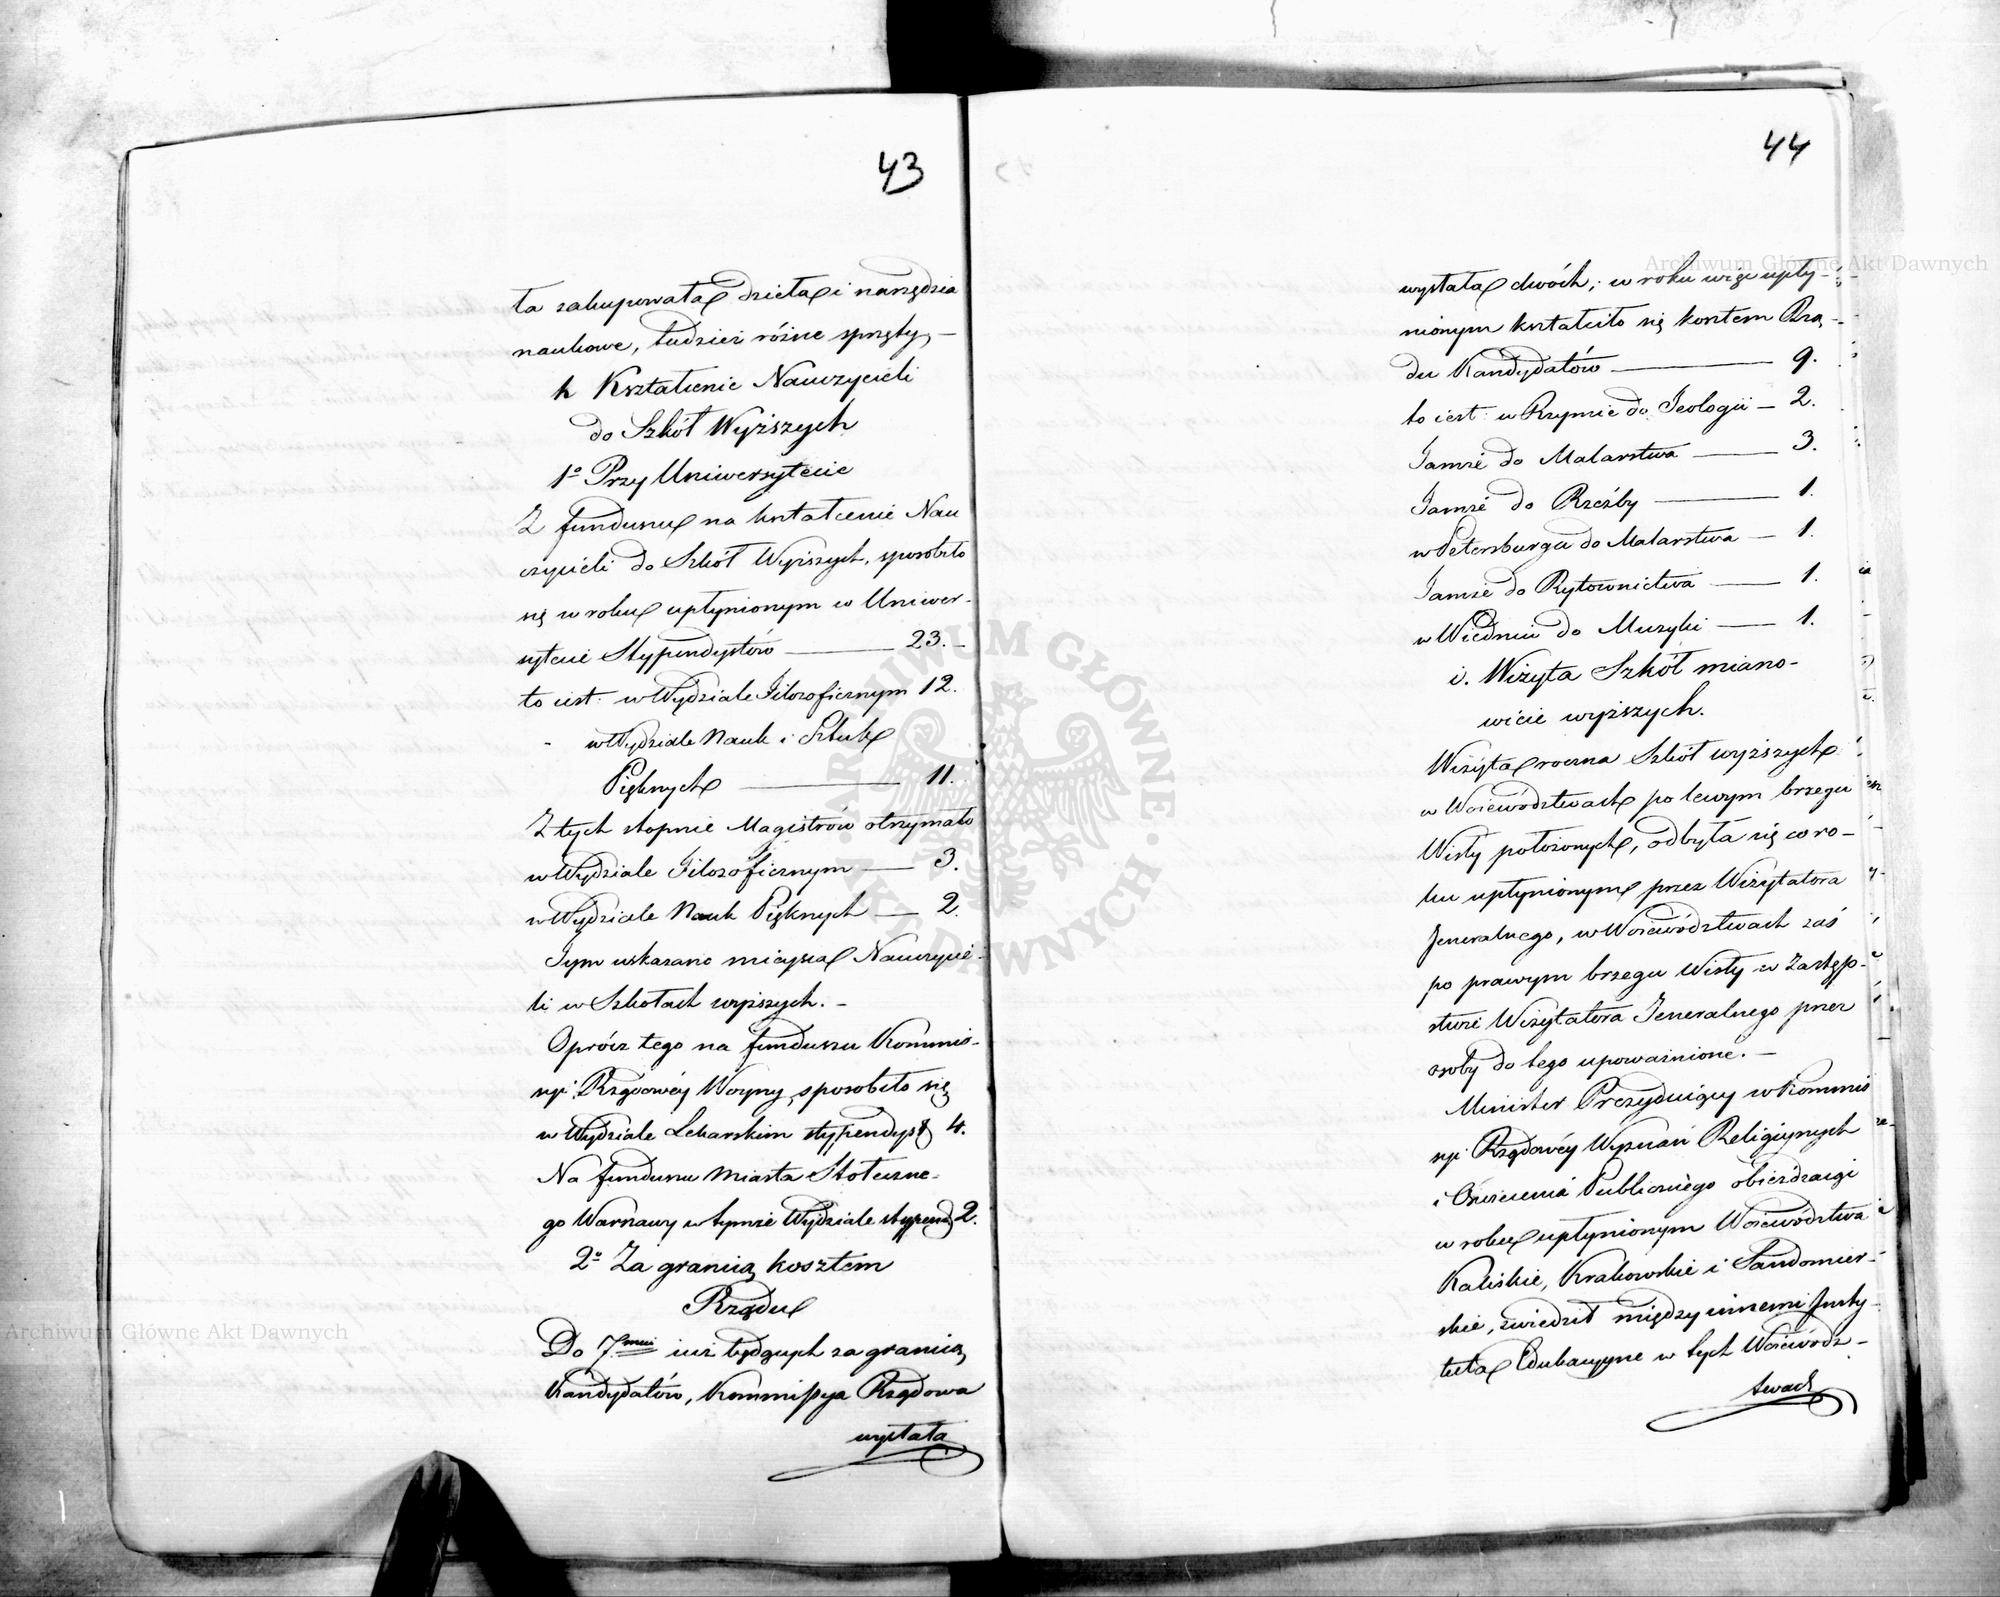 43
ta zakupowała dzieła i narzędzia
naukowe, tudzież różne sprzęty, —
h Kształcenie Nauczycieli
do Szkół Wyższych
1º Przy Uniwersytecie
Z funduszu na kształcenie Nau
czycieli do Szkół Wyższych, sposobiło
się w roku upłynionym w Uniwer-
sytecie Stypendystów — 23. -
to iest: w Wydziale Filozoficznym 12.
- w Wydziale Nauk i Sztuk
Pięknych — 11.
Z tych stopnie Magistrów otrzymało
w Wydziale Filozoficznym — 3.
w Wydziale Nauk Pięknych — 2.
Tym wskazano mieysca Nauczycie-
li w Szkołach wyższych. -
Oprócz tego na funduszu Kommis-
syi Rządowéy Woyny, sposobiło się
w Wydziale Lekarskim stypendyst 4.
Na funduszu Miasta Stołeczne-
go Warszawy w tymże Wydziale stypend 2.
2º Za granicą kosztem
Rządu
Do 7miu iuż będących za granicą
Kandydatów, Kommissya Rządowa
wysłała
44
wysłała dwóch; w roku więc upły-
nionym kształciło się kosztem Rzą-
du Kandydatów — 9.
to iest: w Rzymie do Teologii — 2.
Tamże do Malarstwa — 3.
Tamże do Rzeźby — 1.
w Petersburgu do Malarstwa — 1.
Tamże do Rytownictwa — 1.
w Wiedniu do Muzyki — 1.
i. Wizyta Szkół miano-
wicie wyższych.
Wizyta roczna Szkół wyższych
w Woiewództwach po lewym brzegu
Wisły położonych, odbyła się w ro-
ku upłynionym przez Wizytatora
Jeneralnego, w Woiewództwach zaś
po prawym brzegu Wisły w Zastęp-
stwie Wizytatora Jeneralnego przez
osoby do tego upoważnione. —
Minister Prezyduiący w Kommis
syi Rządowéy Wyznań Religiynych
i Oświecenia Publicznégo obieżdzaiąc
w roku upłynionym Woiewództwa
Kaliskie, Krakowskie i Sandomier-
skie, zwiedził między innemi Insty-
tuta Edukacyyne w tych Woiewódz-
twach
Archiwum Główne Akt Dawnych
Archiwum Główne Akt Dawnych
ARCHIWUM GŁÓWNE · AKT DAWNYCH ·